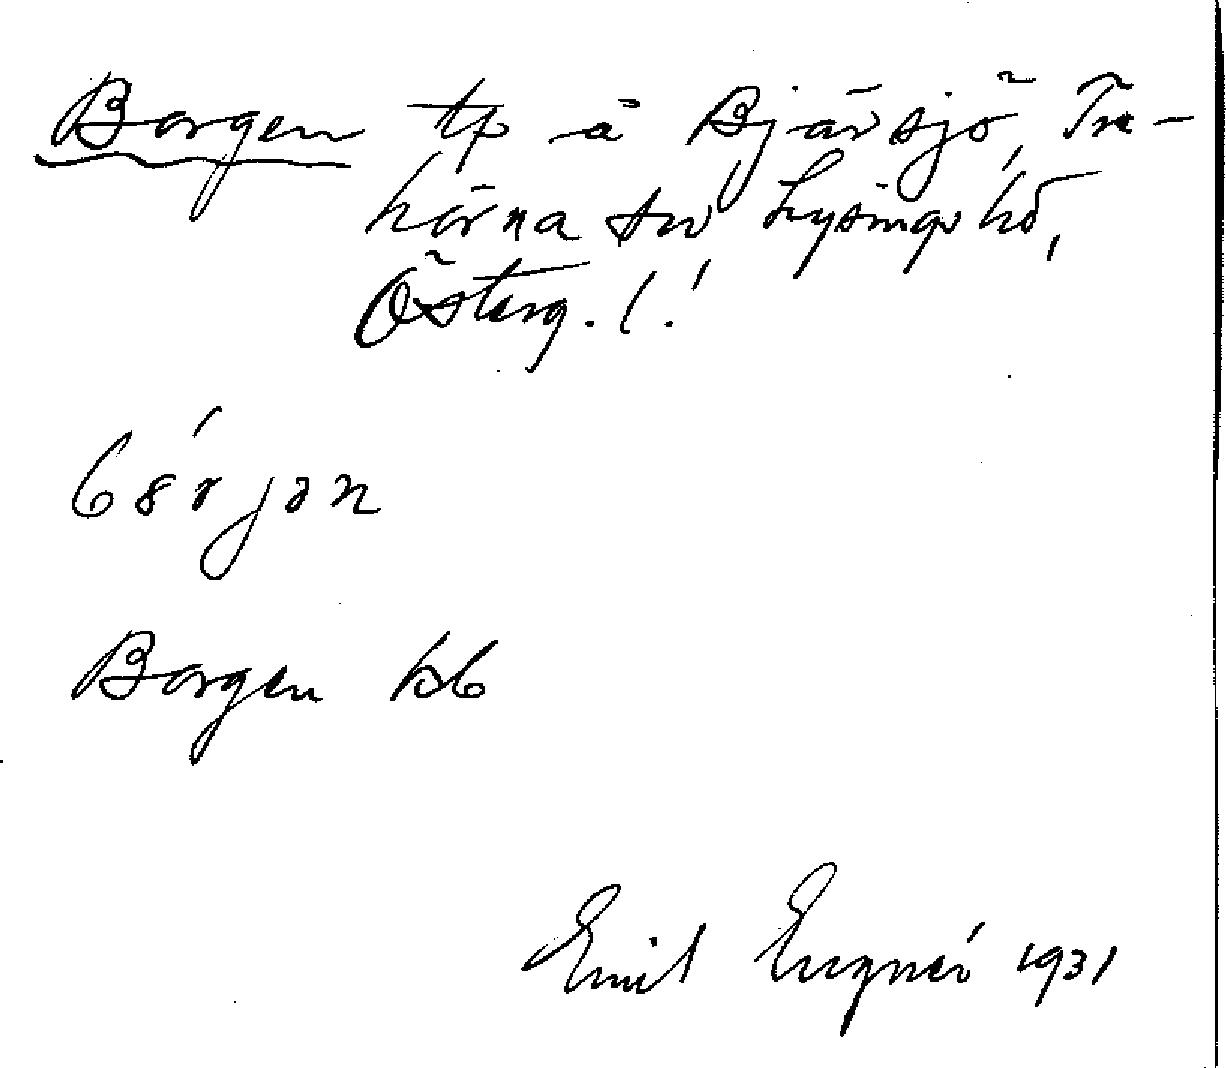 Borgen tp å Bjärsjö, Tre-
hörna sn Lysings hd,
Österg. l.
bərjən
Borgen kb
Emil Eugnér 1931